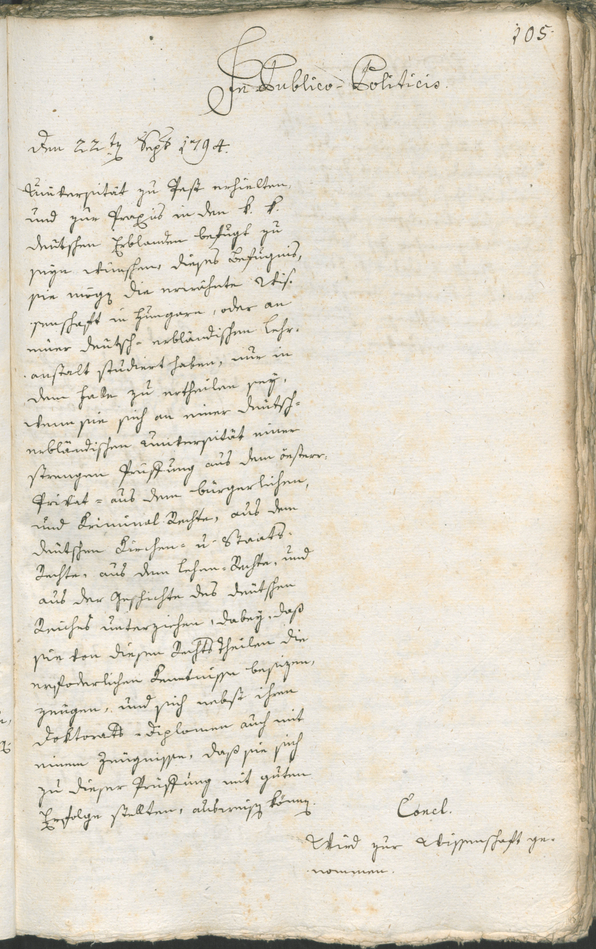 105.
In Publico-Politicis.
Den 22ten Septb 1794.
Universität zu Pest erhielten,
und zur Praxis in den k. k.
deutschen Erblanden befugt zu
seyn wünschen, dieses Befugniß,
sie mögen die erwähnte Wis-
senschaft in Hungarn, oder an
einer deutsch-erbländischen Lehr-
anstalt studiert haben, nur in
dem Falle zu ertheilen sey,
wenn sie sich an einer deutsch-
erbländischen Universität einer
strengen Prüffung aus dem österr.
Privat- aus dem bürgerlichen,
und Kriminal Rechte, aus dem
deutschen Kirchen- u. Staats-
Rechte, aus dem Lehen-Rechte, und
aus der Geschichte des deutschen
Reiches unterziehen, dabey, daß
sie von diesen Rechts Theilen die
erforderlichen Kenntnisse besizen,
zeugen, und sich nebst ihren
Doktorats-Diplomen auch mit
einem Zeugnisse, daß sie sich
zu dieser Prüffung mit gutem
Erfolge stellten, ausweisen können.
Concl.
Wird zur Wissenschaft ge-
nommen.